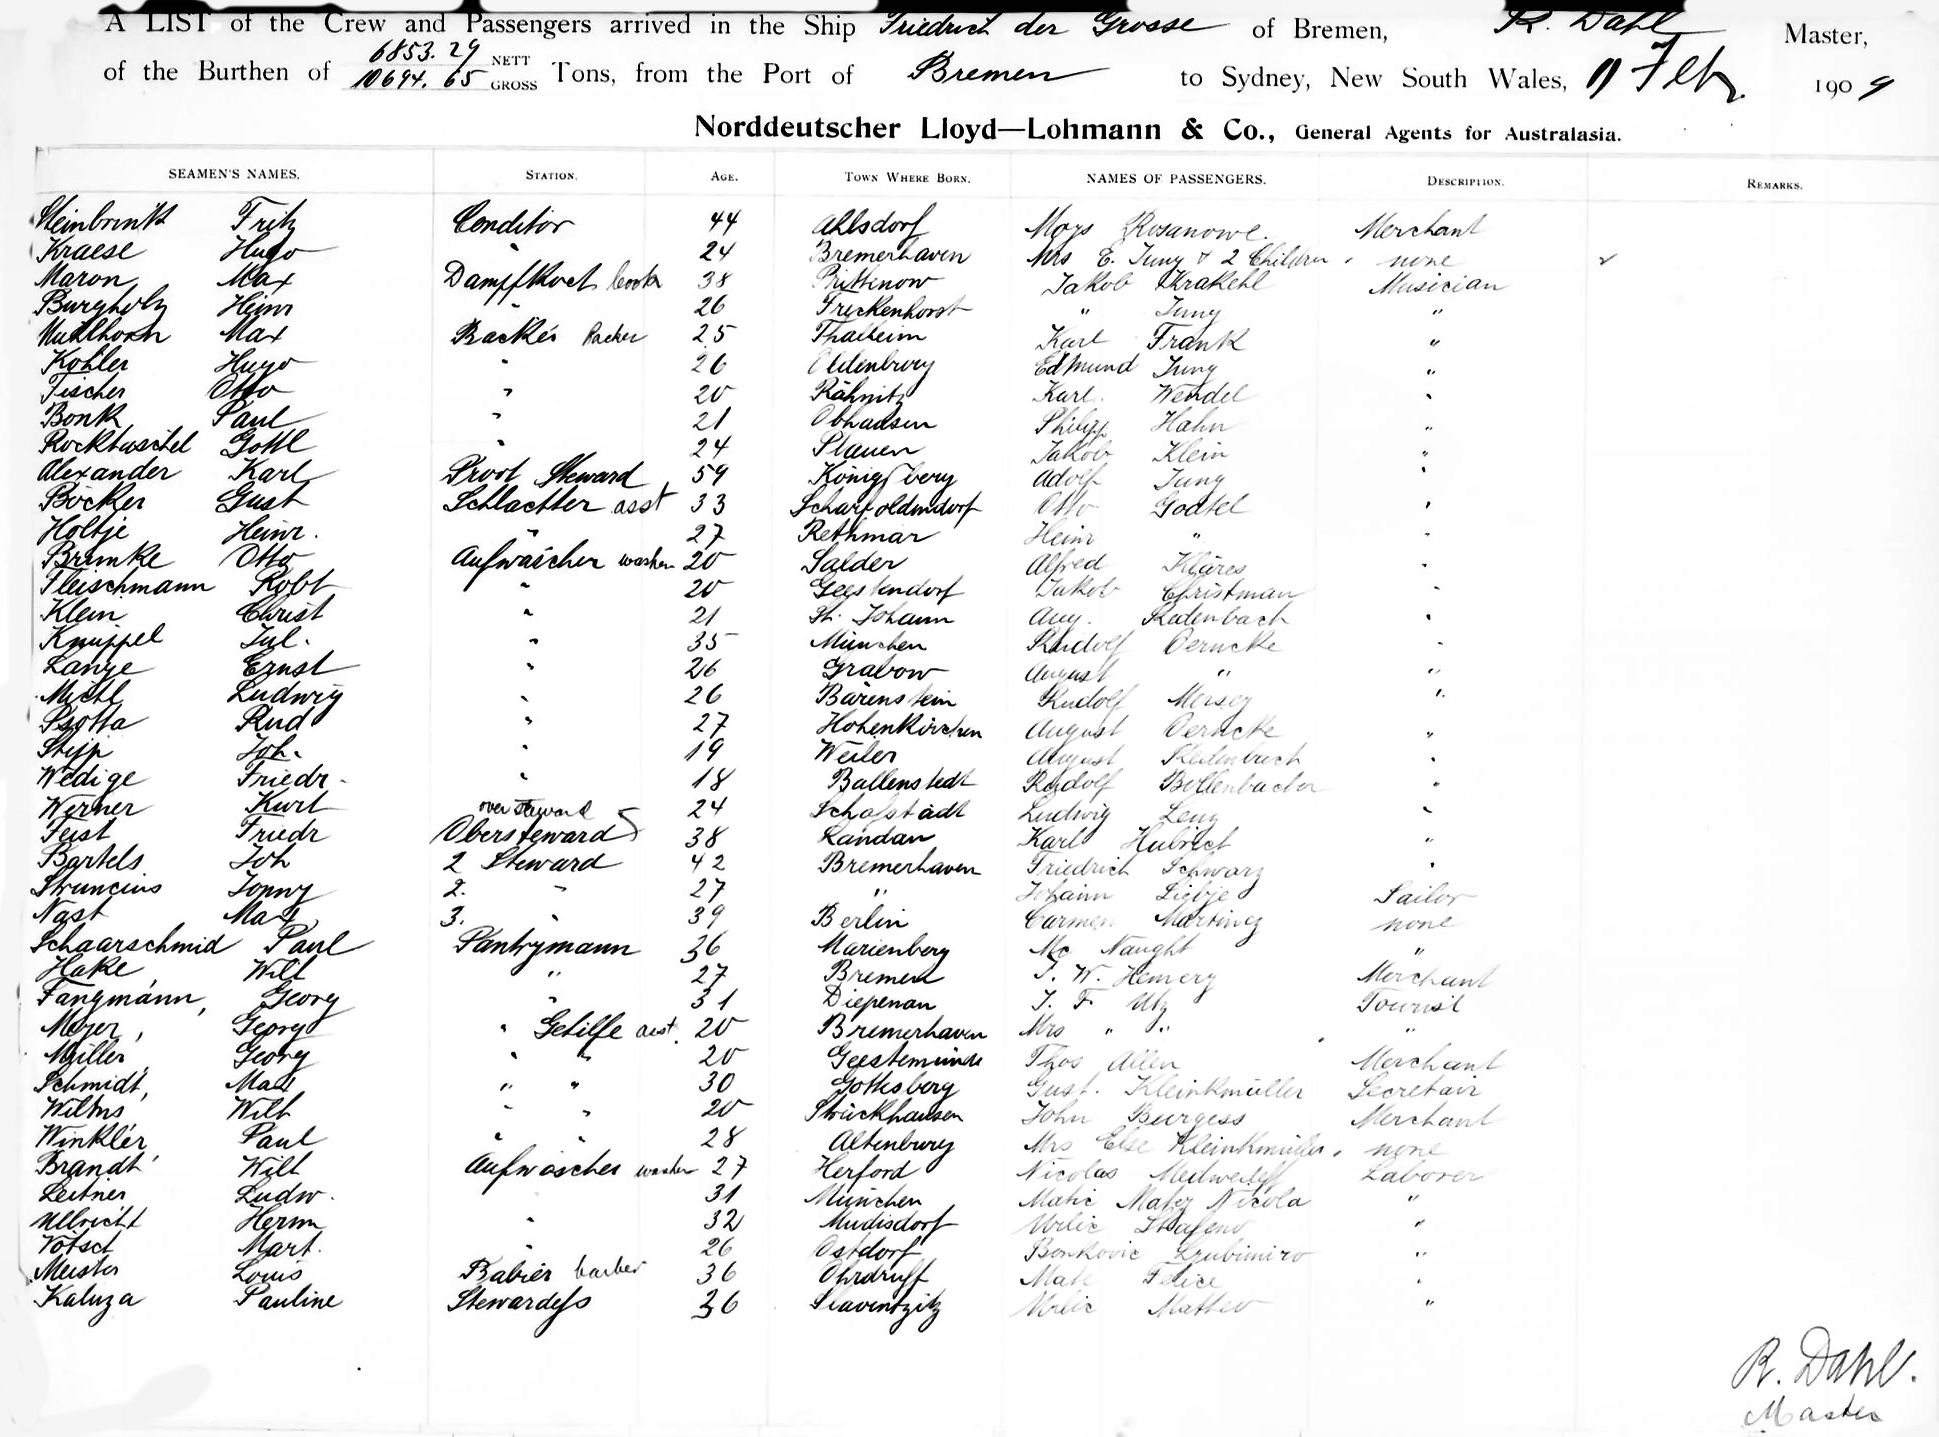 A LIST of the Crew and Passengers arrived in the Ship Friedrich der Grosse of Bremen, R. Dahl Master,
of the Burthen of 6853.29 NETT 10694.65 GROSS Tons, from the Port of Bremen to Sydney, New South Wales, 11 Febr. 1909
Norddeutscher Lloyd—Lohmann & Co., General Agents for Australasia.
SEAMEN'S NAMES. STATION. AGE. TOWN WHERE BORN. NAMES OF PASSENGERS. DESCRIPTION. REMARKS.
Steinbrink Fritz Conditor 44 Ahlsdorf Moys Rosanowe. Merchant
Kraese Hugo " 24 Bremerhaven Mrs E. Jung & 2 Children none
Maron Max Dampfkoch Cook 38 Jakob Krakehl Musician
Burgholz Heinr " 26 Freckenhorst " Jung "
Muhlhorn Max Bäcker Backer 25 Thalheim Karl Frank "
Kohler Hugo " 26 Oldenburg Edmund Jung "
Fischer Otto " 20 Rähnitz Karl Wendel "
Bonk Paul " 21 Obhausen Philipp Hahn "
Rocktaschel Gottl " 24 Plauen Jakob Klein "
Alexander Karl Prov Steward 59 Königsberg Adolf Jung "
Böcker Gust Schlachter asst 33 Scharfoldendorf Otto Godtel "
Holtje Heinr. " 27 Rethmar Heinr " "
Brimke Otto Aufwäscher washer 20 Salder Alfred Klares "
Fleischmann Robt " 20 Geestendorf Jakob Christman "
Klein Christ " 21 St. Johann Aug. Radenbach "
Knuppel Jul. " 35 München Rudolf Oerncke "
Lange Ernst " 26 Grabow August " "
Michl Ludwig " 26 Bärenstein Rudolf Mersey "
Psotta Rud " 27 Hohenkirchen August Oerncke "
Stipp Joh. " 19 Weiler August Redenbach "
Wedige Friedr. " 18 Ballenstedt Rudolf Bollenbacher "
Werner Kurt over Steward 24 Schafstädt Ludwig Leng "
Feist Friedr Obersteward 38 Landau Karl Hubrich "
Bartels Joh 2 Steward 42 Bremerhaven Friedrich Schwarz "
Struncius Jonny 2. " 27 " Johann Sailor
Nast Max 3. " 39 Berlin Carmen Martinez none
Schaarschmid Paul Pantrymann 36 Marienberg Mc Naught "
Hake Wilh " 27 Bremen J. W. Hemery Merchant
Fangmann, Georg " 31 Diepenau J. F. Utz Tourist
Meyer, Georg " Gehilfe asst. 20 Bremerhaven Mrs " " "
Müller, Georg " " 20 Geestemünde Thos Allen Merchant
Schmidt, Max " " 30 Gottesberg Gust. Kleinkmüller Secretair
Wilms Wilh " " 20 Struckhausen John Burgess Merchant
Winkler, Paul " " 28 Altenburg Mrs Else Kleinkmüller, none
Brandt Wilh Aufwäscher washer 27 Herford Nicolas Medwedeff Laborer
Leitner Ludw. " 31 München Matic Matez Nicola "
Ullricht Herm " 32 Mudisdorf Urlic "
Votsch Mart. " 26 Ostdorf Bonkovic Ljubimiro "
Meister Louis Babier barber 36 Ohrdruff Mate Felice "
Kaluza Pauline Stewardess 36 Slaventzitz Urlic Matteo "
R. Dahl.
Master